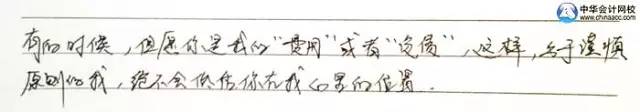 中华会计网校
www.chinaacc.com
有的时候，但愿你是我的“费用”或者“负债”，这样，出于谨慎
原则的我，绝不会低估你在我心里的位置.